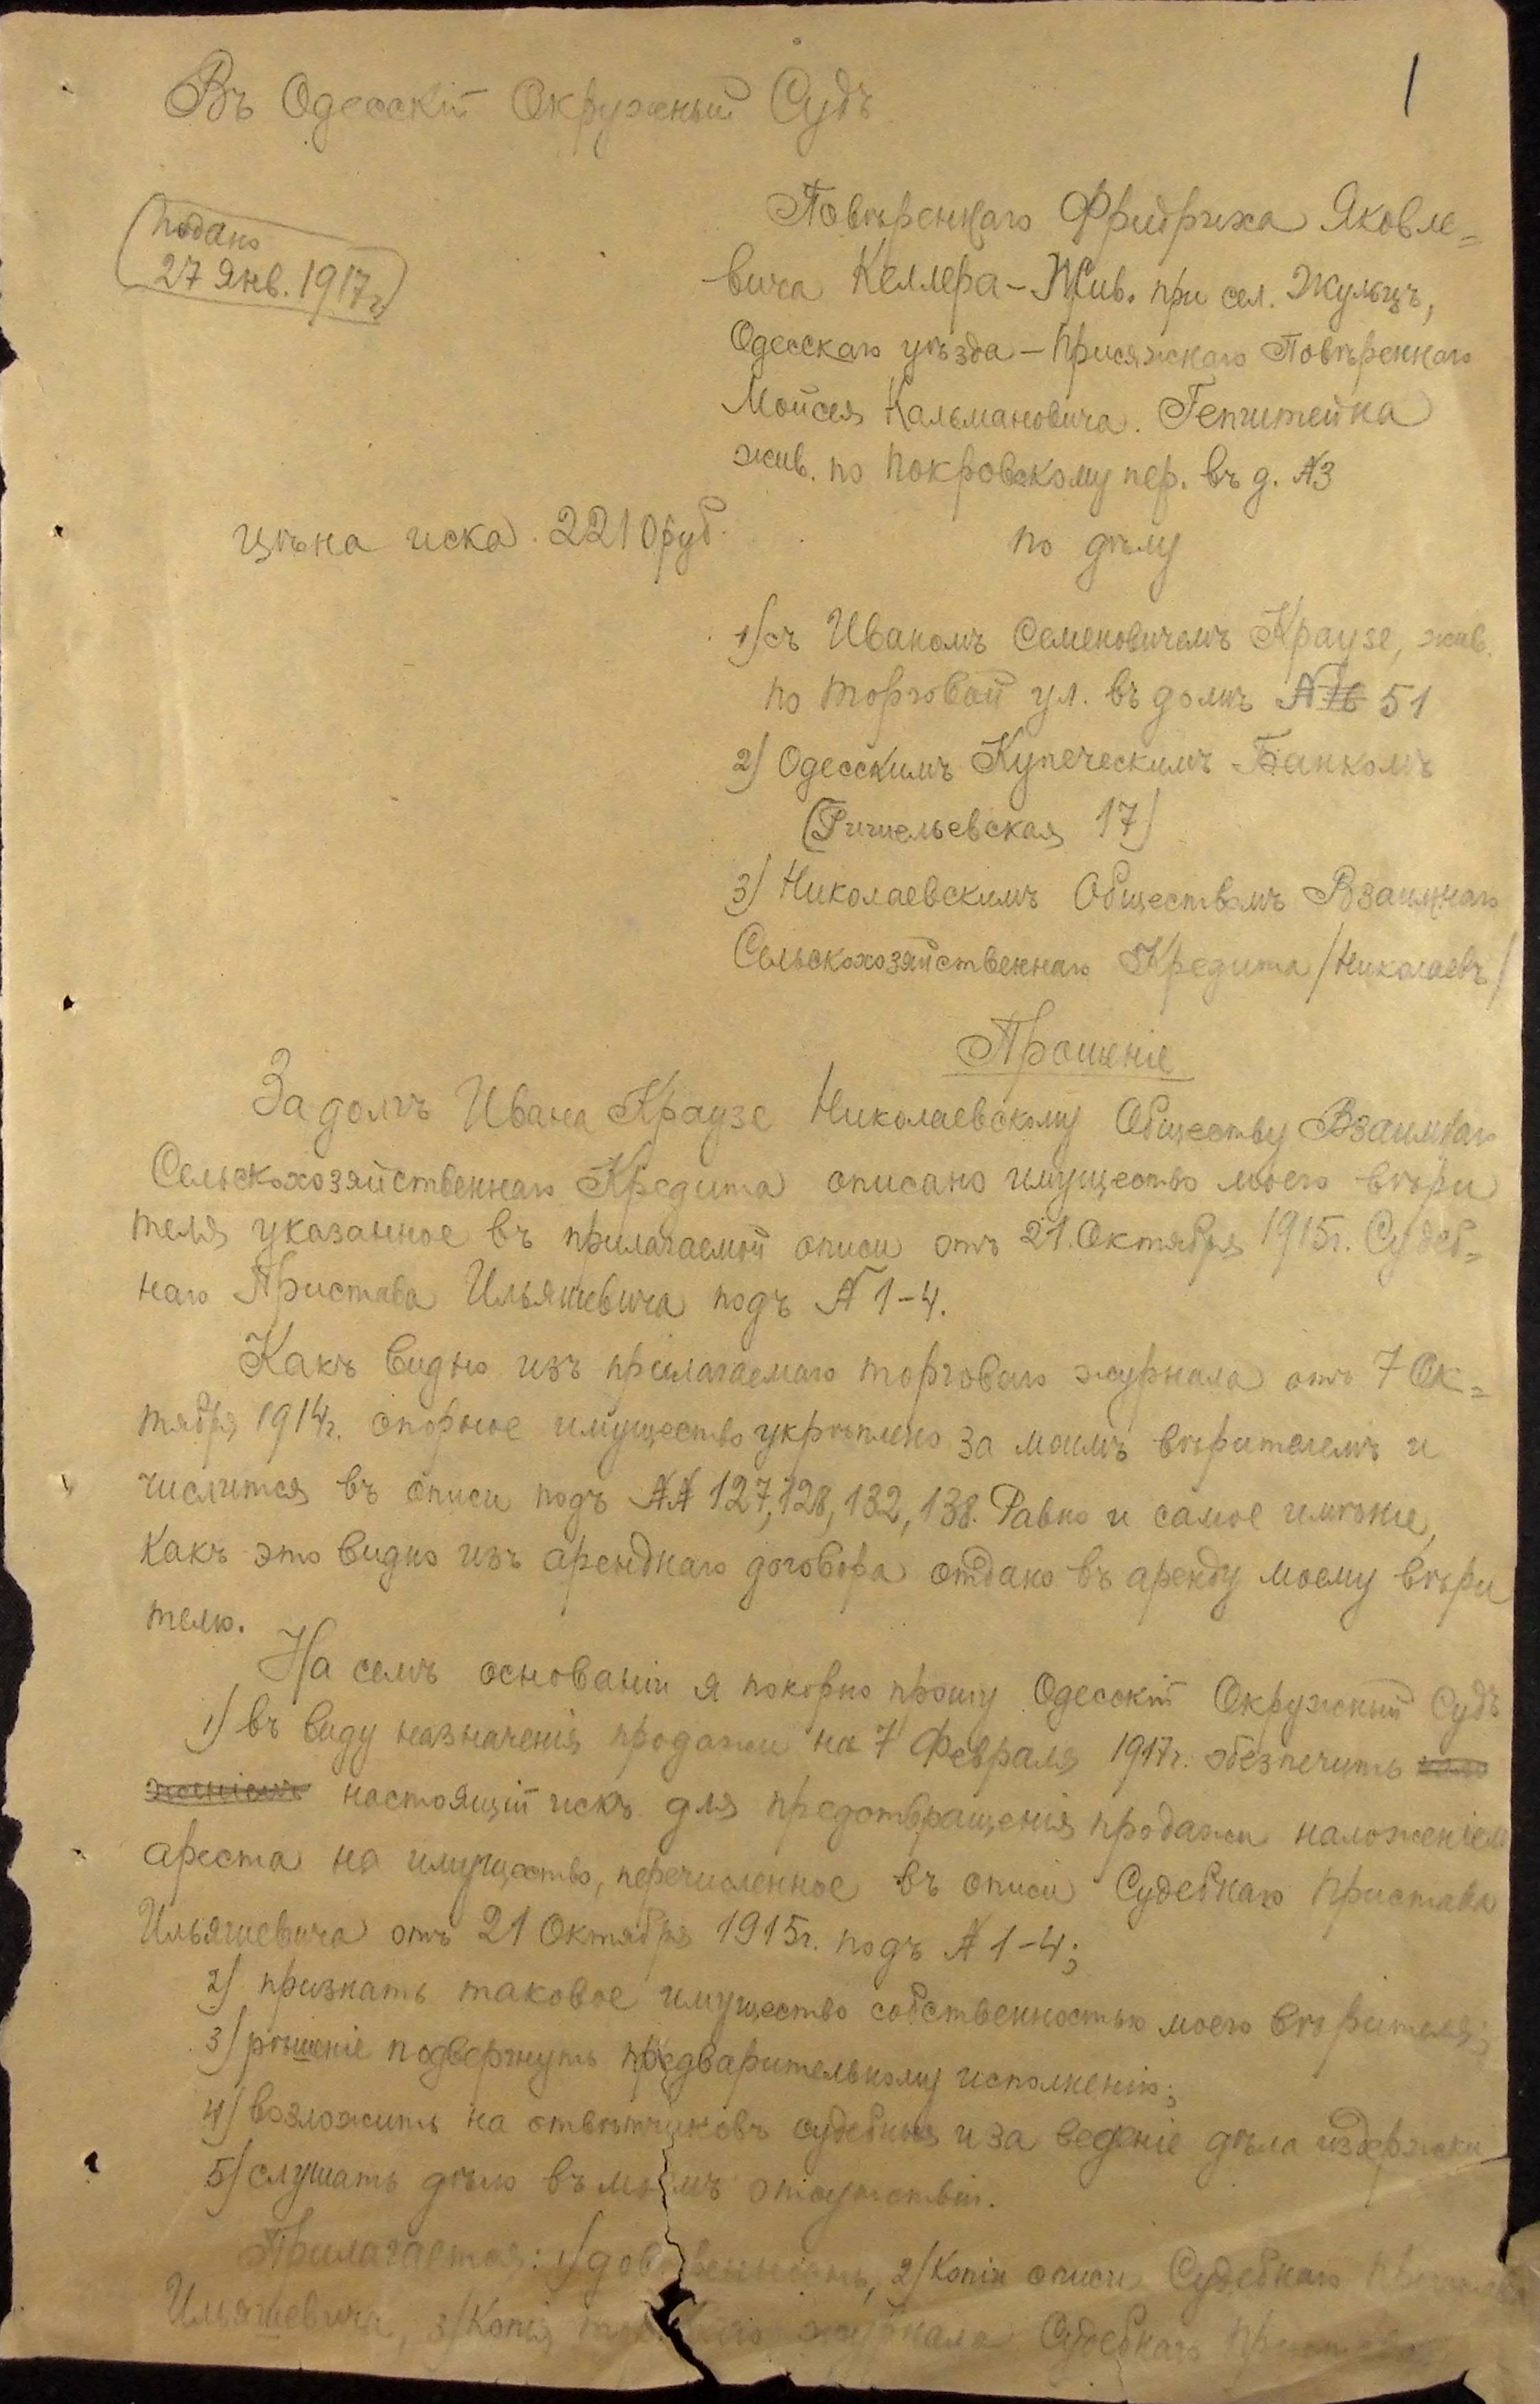 1
Въ Одесскій Окружный Судъ
Подано
27 Янв. 1917г
Повѣреннаго Фридриха Яковле=
вича Келлера – Жив. при сел.
Одесскаго уѣзда – Присяжнаго Повѣреннаго
Мойсея Кальмановича Гепштейна
жив. по Покровскому пер. въ д. №3
цѣна иска 2210 руб.
по дѣлу
1) съ Иваномъ Семеновичемъ Краузе, жив.
по Торговой ул. въ домѣ № 51
2) Одесскимъ Купеческимъ Банкомъ
(Ришельевская 17)
3) Николаевскимъ Обществомъ Взаимнаго
Сельскохозяйственнаго Кредита /Николаевъ/
Прошеніе
За долгъ Ивана Краузе Николаевскому Обществу Взаимнаго
Сельскохозяйственнаго Кредита описано имущество моего вѣри
теля указанное въ прилагаемой описи отъ 21 Октября 1915г. Судеб=
наго Пристава Ильяшевича подъ № 1-4.
Какъ видно изъ прилагаемаго торговаго журнала отъ 7 Ок=
тября 1914г. спорное имущество укрѣплено за моимъ вѣрителемъ и
числится въ описи подъ №№ 127, 128, 132, 138. Равно и самое имѣніе,
какъ это видно изъ аренднаго договора отдано въ аренду моему вѣри
телю.
На семъ основаніи я покорно прошу Одесскій Окружный Судъ
1) въ виду назначенія продажи на 7 Февраля 1917г. обезпечить нало
женіемъ настоящій искъ для предотвращенія продажи наложеніем
ареста на имущество, перечисленное въ описи Судебнаго Пристава
Ильяшевича отъ 21 Октября 1915г. подъ № 1-4;
2) признать таковое имущество собственностью моего вѣрителя;
3) рѣшеніе подвергнуть предварительному исполненію;
4) возложить на отвѣтчиковъ судебныя и за веденіе дѣла издержки
5) слушать дѣло въ моемъ отсутствіи.
Прилагается: 1) довѣренность, 2) Копія описи Судебнаго Пристава
Ильяшевича, 3) Копія торговаго журнала Судебнаго Пристава